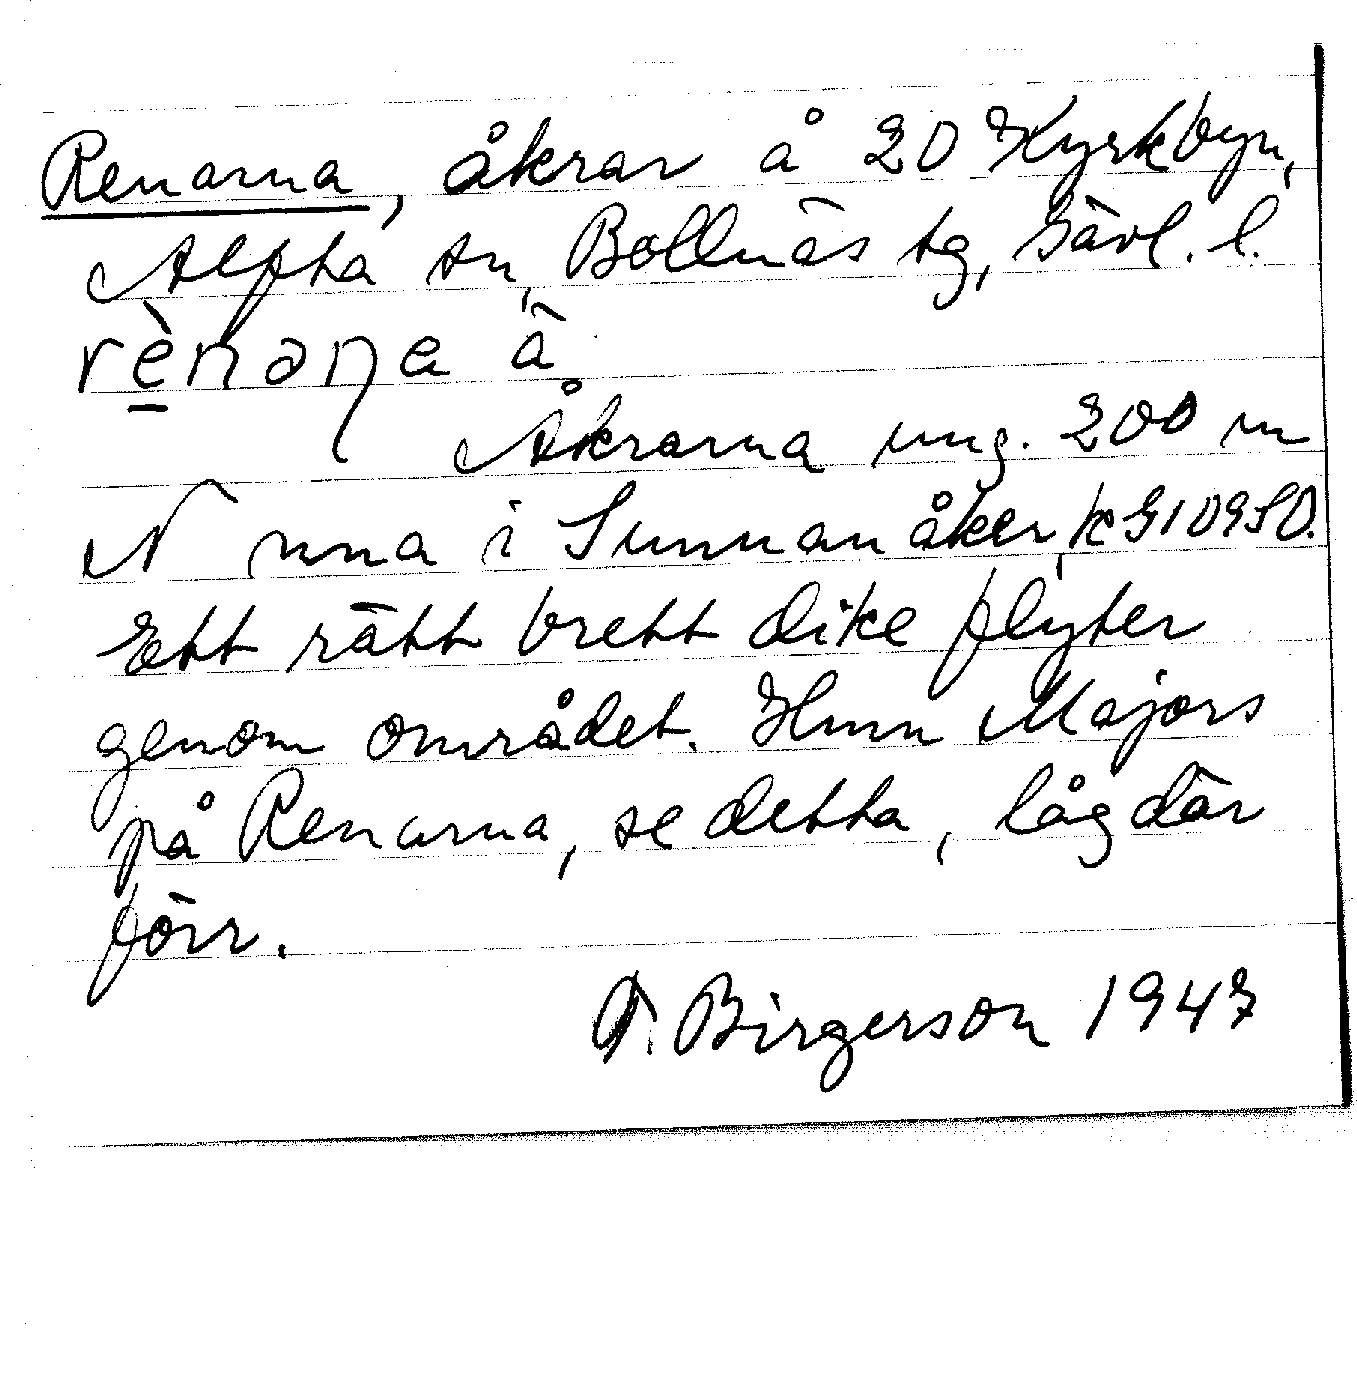 Renarna, åkrar å 20 Kyrkbyn,
Alfta sn, Bollnäs tg, Gävl. l.
rènaṇa ä
Åkrarna ung. 200 m
N nna i Sunnanåker, k G10950.
Ett rätt brett dike flyter
genom området. Hmn Majors
på Renarna, se detta, låg där
förr.
T. Birgerson 1947